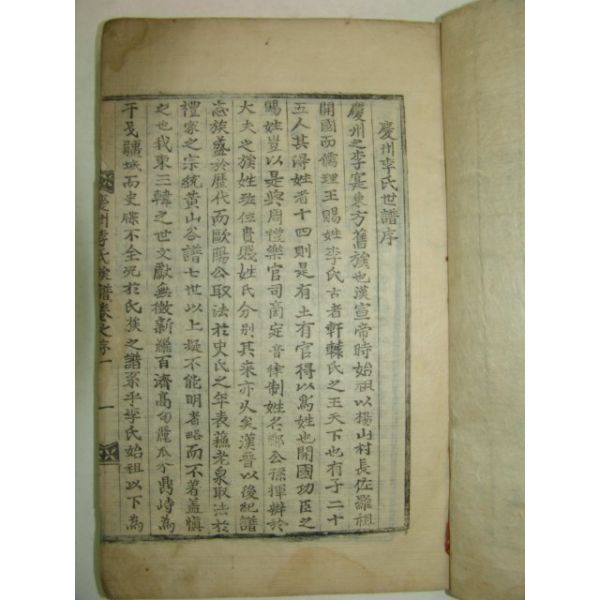 慶州李氏世譜序
慶州之李寔東方舊族也漢宣帝時始祖以楊山村長佐羅祖
開國而儒理王賜姓李氏古者軒轅氏之王天下也有子二十
五人其得姓者十四則是有土有官得以爲姓也開國功臣之
賜姓豈以是歟周禮樂官司商定音律制姓名鄭公孫揮辨於
大夫之族姓班位貴賤姓氏分別其來亦久矣漢晉以後紀譜
志族盛於歷代而歐陽公取法於史氏之年表蘇老泉取法於
禮家之宗統黃山谷譜七世以上疑不能明者略而不著盖愼
之也我東三韓之世文獻無徵新羅百濟高句麗瓜分鼎峙爲
干戈疆域而史牒不全況於氏族之譜系乎李氏始祖以下爲
慶州李氏族譜卷之序一